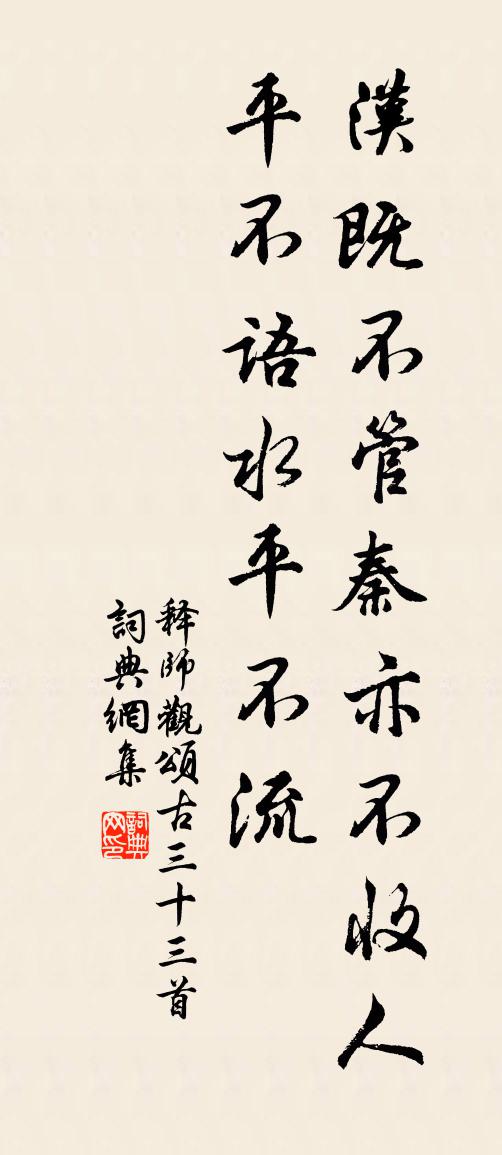 漢既不管秦亦不收人
平不語水平不流
释師觀頌古三十三首
詞典網集
詞典网印